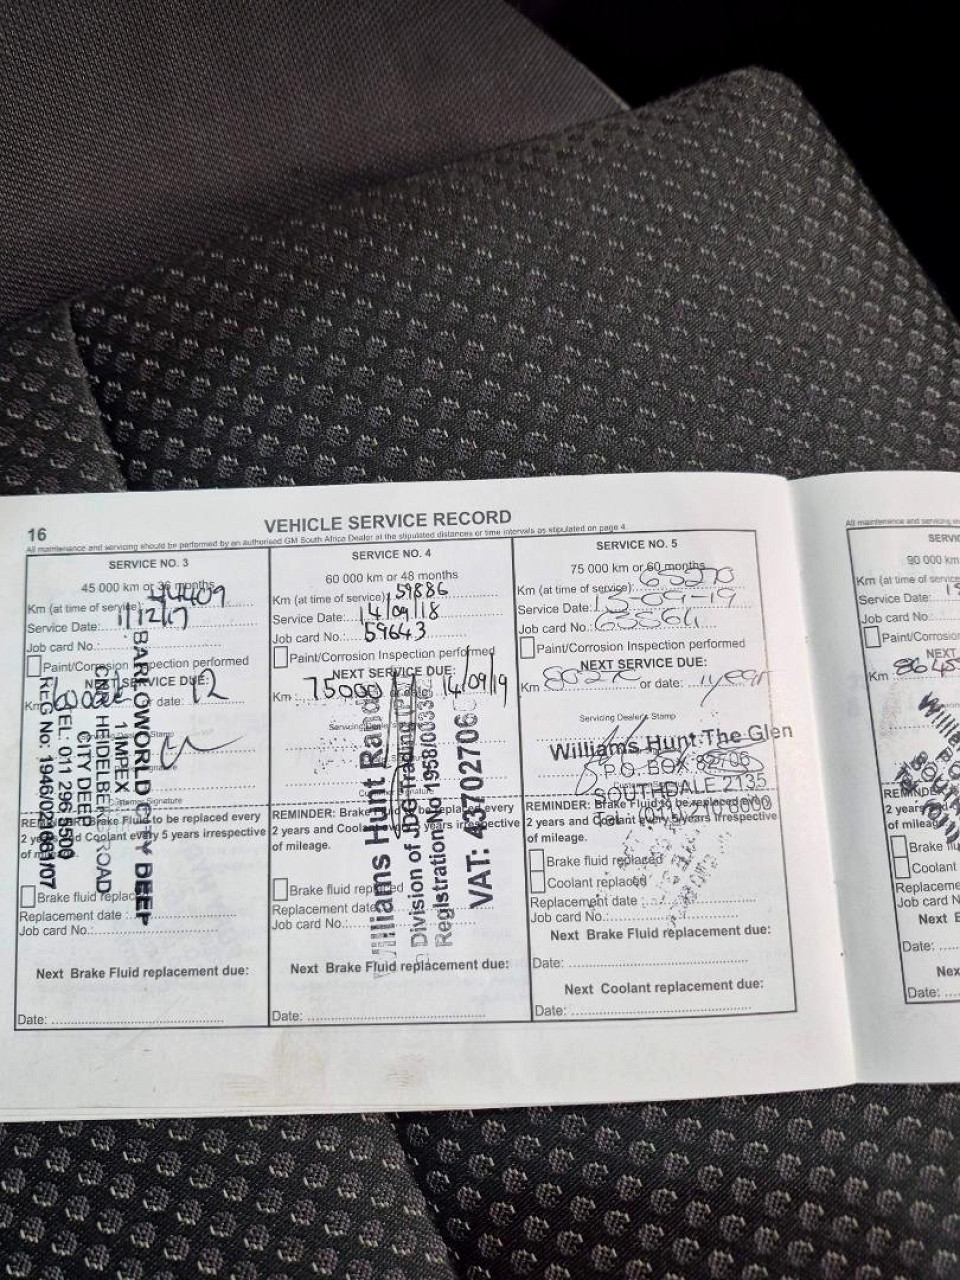 16
VEHICLE SERVICE RECORD
All maintenance and servicing should be performed by an authorised GM South Africa Dealer at the stipulated distances or time intervals as stipulated on page 4.
SERVICE NO. 3
45 000 km or 36 months
Km (at time of service): 44409
Service Date: 1/12/17
Job card No.:
Paint/Corrosion Inspection performed
NEXT SERVICE DUE:
Km 60000 or date: 12
BARLOWORLD CITY DEEP
1 IMPEX
CNR HEIDELBERG ROAD
CITY DEEP
TEL: 011 296 5500
REG No: 1946/021661/07
Customer Signature
REMINDER: Brake Fluid to be replaced every
2 years and Coolant every 5 years irrespective
of mileage.
Brake fluid replaced
Replacement date :
Job card No.:
Next Brake Fluid replacement due:
Date:
SERVICE NO. 4
60 000 km or 48 months
Km (at time of service) 59886
Service Date: 14/09/18
Job card No.: 59643
Paint/Corrosion Inspection performed
NEXT SERVICE DUE:
Km : 75000 or date: 14/09/19
Servicing Dealer's Stamp
Williams Hunt Rand
Division of JDG Trading (P
Registration No 1958/0033
VAT: 43702706
REMINDER: Brake Fluid to be replaced every
2 years and Coolant every 5 years irrespective
of mileage.
Brake fluid replaced
Replacement date
Job card No.:
Next Brake Fluid replacement due:
Date:
SERVICE NO. 5
75 000 km or 60 months
Km (at time of service): 65270
Service Date: 13-09-19
Job card No.: 63564
Paint/Corrosion Inspection performed
NEXT SERVICE DUE:
Km 80270 or date: 1 year
Servicing Dealer's Stamp
Williams Hunt The Glen
P.O. BOX 82706
SOUTHDALE 2135
REMINDER: Brake Fluid to be replaced every
2 years and Coolant every 5 years irrespective
of mileage.
Brake fluid replaced
Coolant replaced
Replacement date :
Job card No.:
Next Brake Fluid replacement due:
Date:
Next Coolant replacement due:
Date:
All maintenance and servicing
SERVIC
90 000 km
Km (at time of service
Service Date:
Job card No.:
Paint/Corrosion
NEXT
Km
REMINDE
2 years
of mileage
Brake flu
Coolant
Replaceme
Job card N
Next B
Date:
Nex
Date: